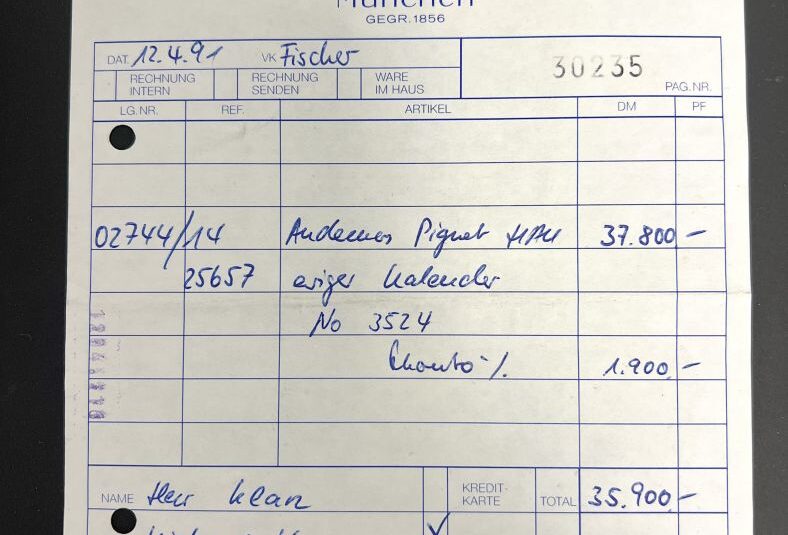 München
GEGR. 1856
DAT. 12.4.91 VK Fischer
30235
RECHNUNG INTERN RECHNUNG SENDEN WARE IM HAUS PAG.NR.
LG.NR. REF. ARTIKEL DM PF
02744/14 Audemars Piguet HAU 37.800 –
25657 ewiger Kalender
No 3524
Skonto ./. 1.900 –
KREDIT-
NAME Herr KARTE TOTAL 35.900 –